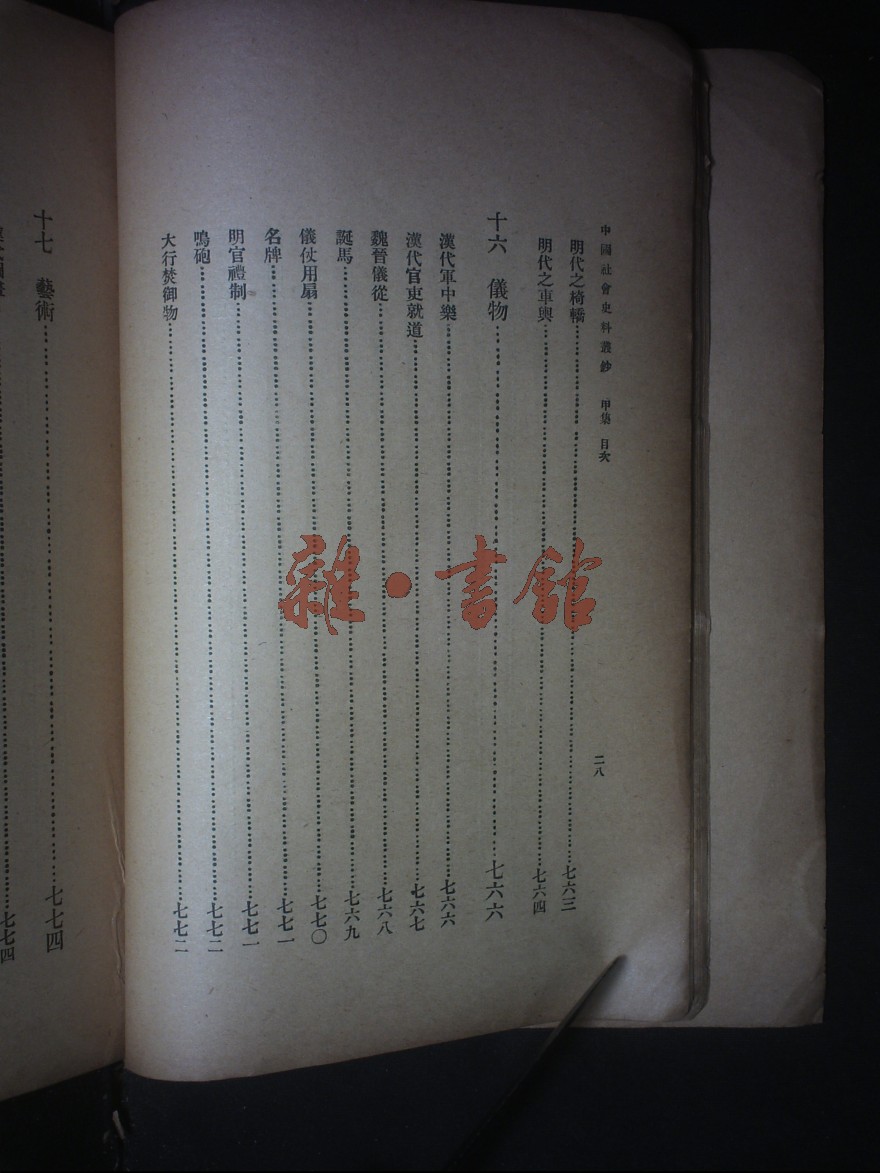 中國社會史料叢鈔 甲集 目次
二八
明代之椅轎………七六三
明代之車輿………七六四
十六 儀物………七六六
漢代軍中樂………七六六
漢代官吏就道………七六七
魏晉儀從………七六八
誕馬………七六九
儀仗用扇………七七〇
名牌………七七一
明官禮制………七七一
鳴砲………七七二
大行焚御物………七七二
十七 藝術………七七四
七七四
雜·書館